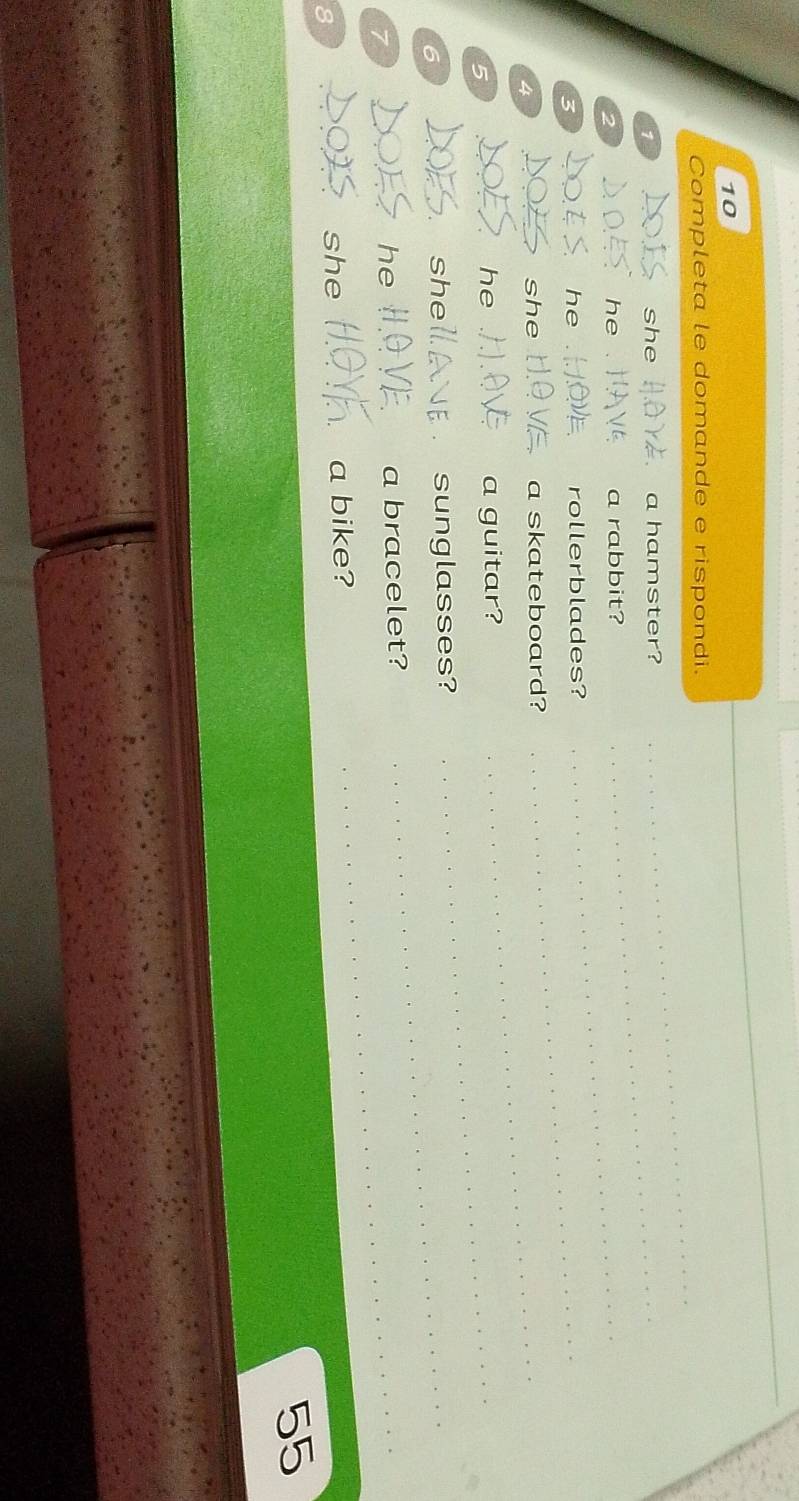 10
Completa le domande e rispondi.
1 DOES she HAVE a hamster?
2 DOES he HAVE a rabbit?
3 DOES he HAVE rollerblades?
4 DOES she HAVE a skateboard?
5 DOES he HAVE a guitar?
6 DOES she HAVE sunglasses?
7 DOES he HAVE a bracelet?
8 DOES she HAVE a bike?
55